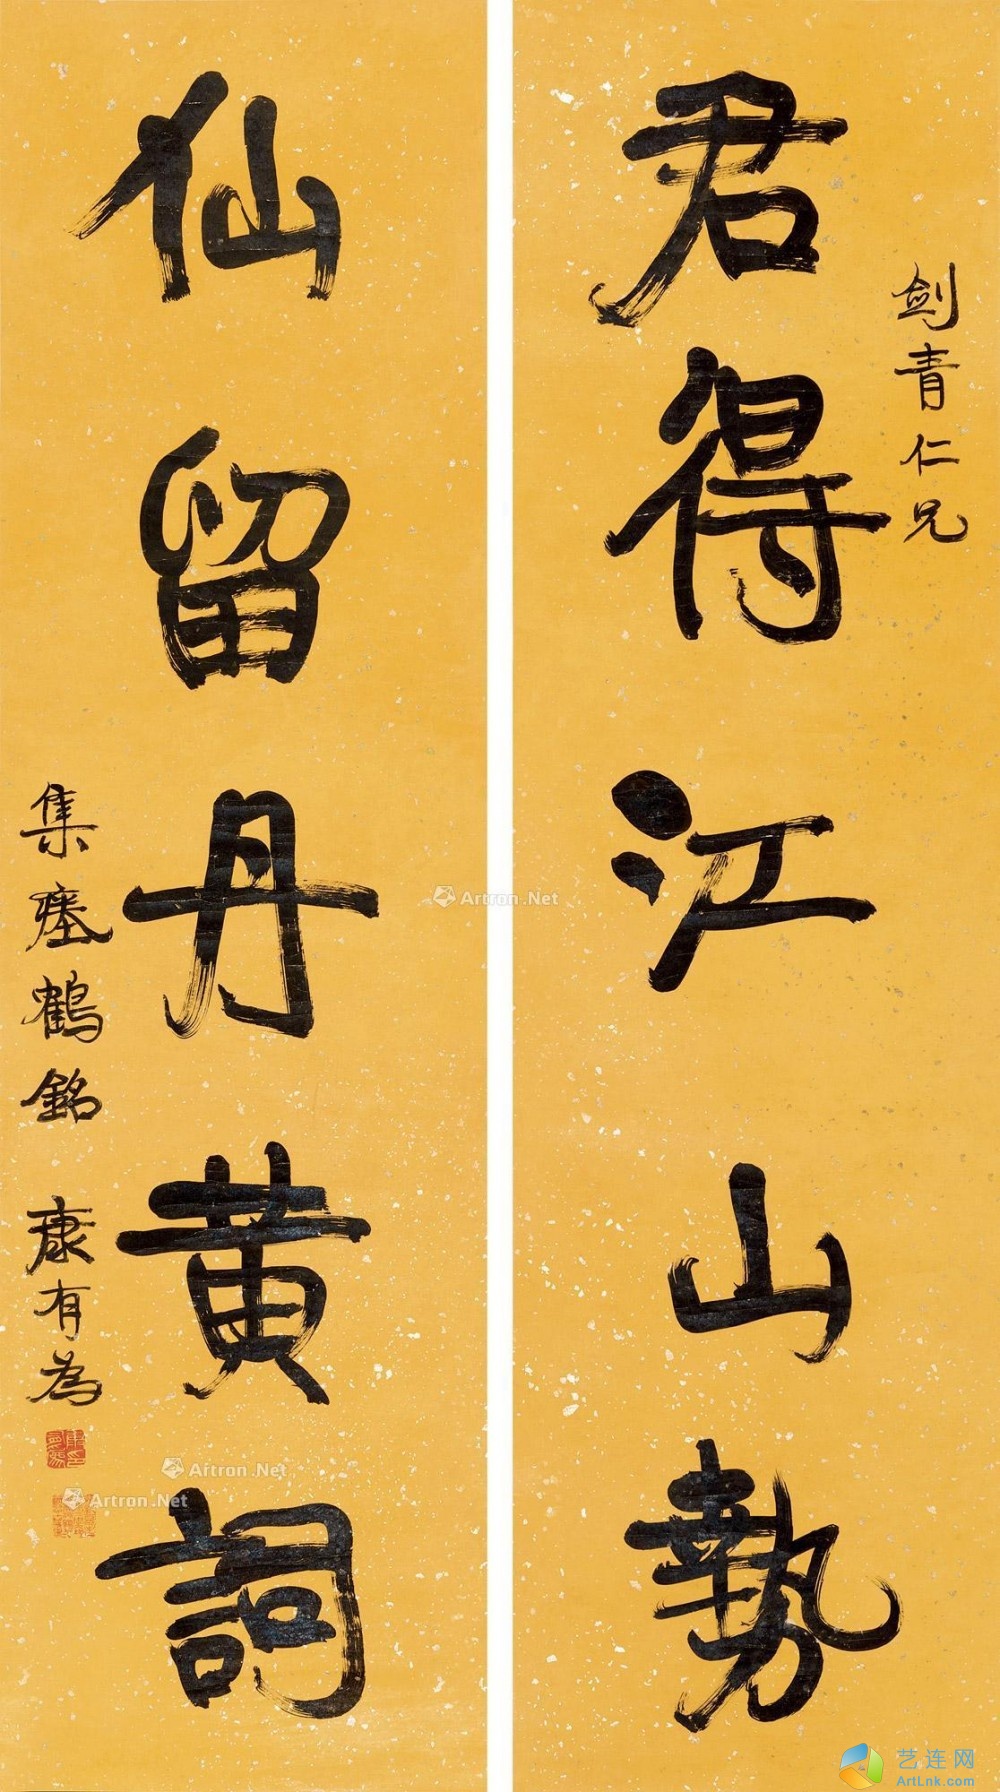 剑青仁兄
君得江山勢
仙留丹黃詞
集瘞鶴銘 康有為
Artron.Net
Artron.Net
Artron.Net
艺连网
ArtLnk.com